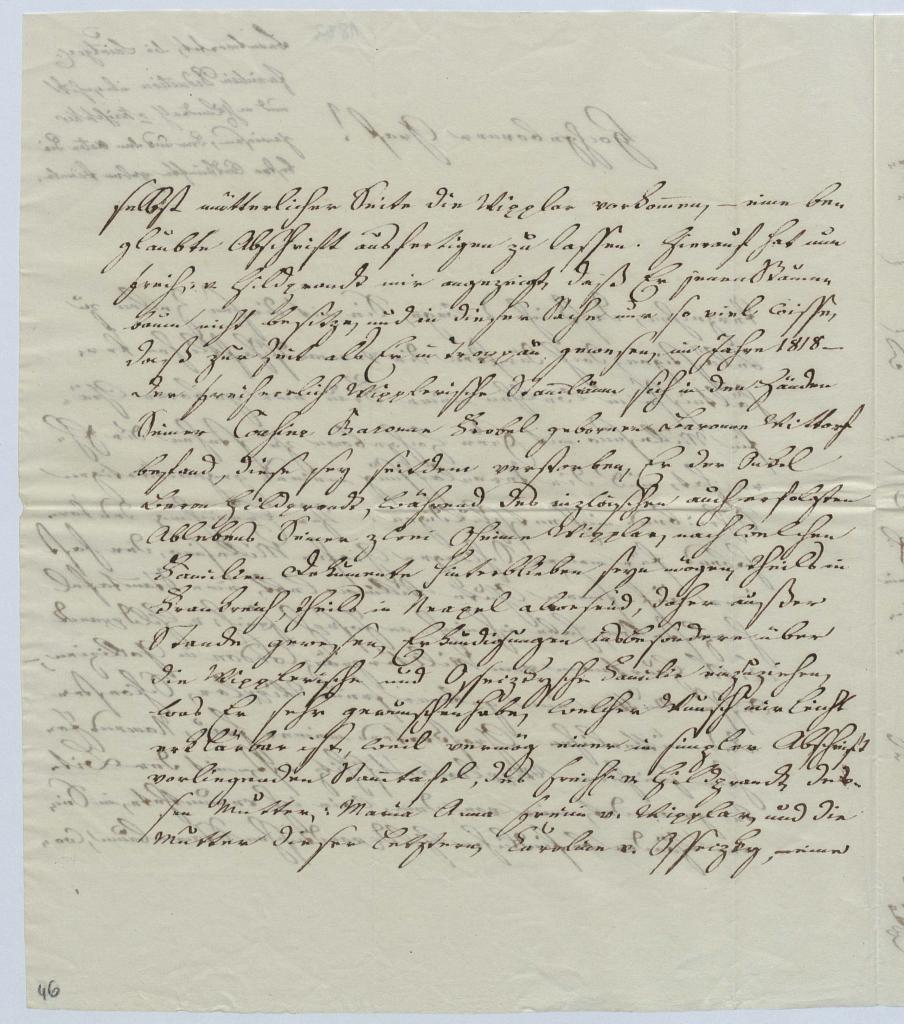 selbst mütterlicher Seite die Wipplar vorkom̅en, – eine be-
glaubte Abschrift ausfertigen zu lassen. Hierauf hat nun
Freih: v. Hildprandt mir angezeigt, daß Er jenen Stamm-
baum nicht besitze, und in dieser Sache nur so viel wisse,
daß zur Zeit als Er in Troppau gewesen, im Jahre 1818 –
der freiherrlich Wipplerische Stam̅baum sich in den Händen
Seiner Cousine Baronne geborner Baronne Wittorf
befand, diese sey seitdem verstorben, Er der
Baron Hildprandt, während des inzwischen auch erfolgten
Ablebens Seiner zwei Oheime Wipplar, nach welchen
Familien Dokumente hinterblieben seyn mögen, theils in
Frankreich, theils in Neapel abwesend, daher außer
Stande gewesen, Erkundigungen insbesondere über
die Wipplerische und Ossezkysche Familie einzuziehen,
was Er sehr gewunschen habe, welcher Wunsch mir leicht
erklärbar ist, weil vermög einer in simpler Abschrift
vorliegenden Stam̅tafel, des Freih: v. Hildprandt, des-
sen Mutter: Maria Anna Freiin v. Wipplar, und die
Mutter dieser letztern, Karoline v. Ossezky, – eine
46